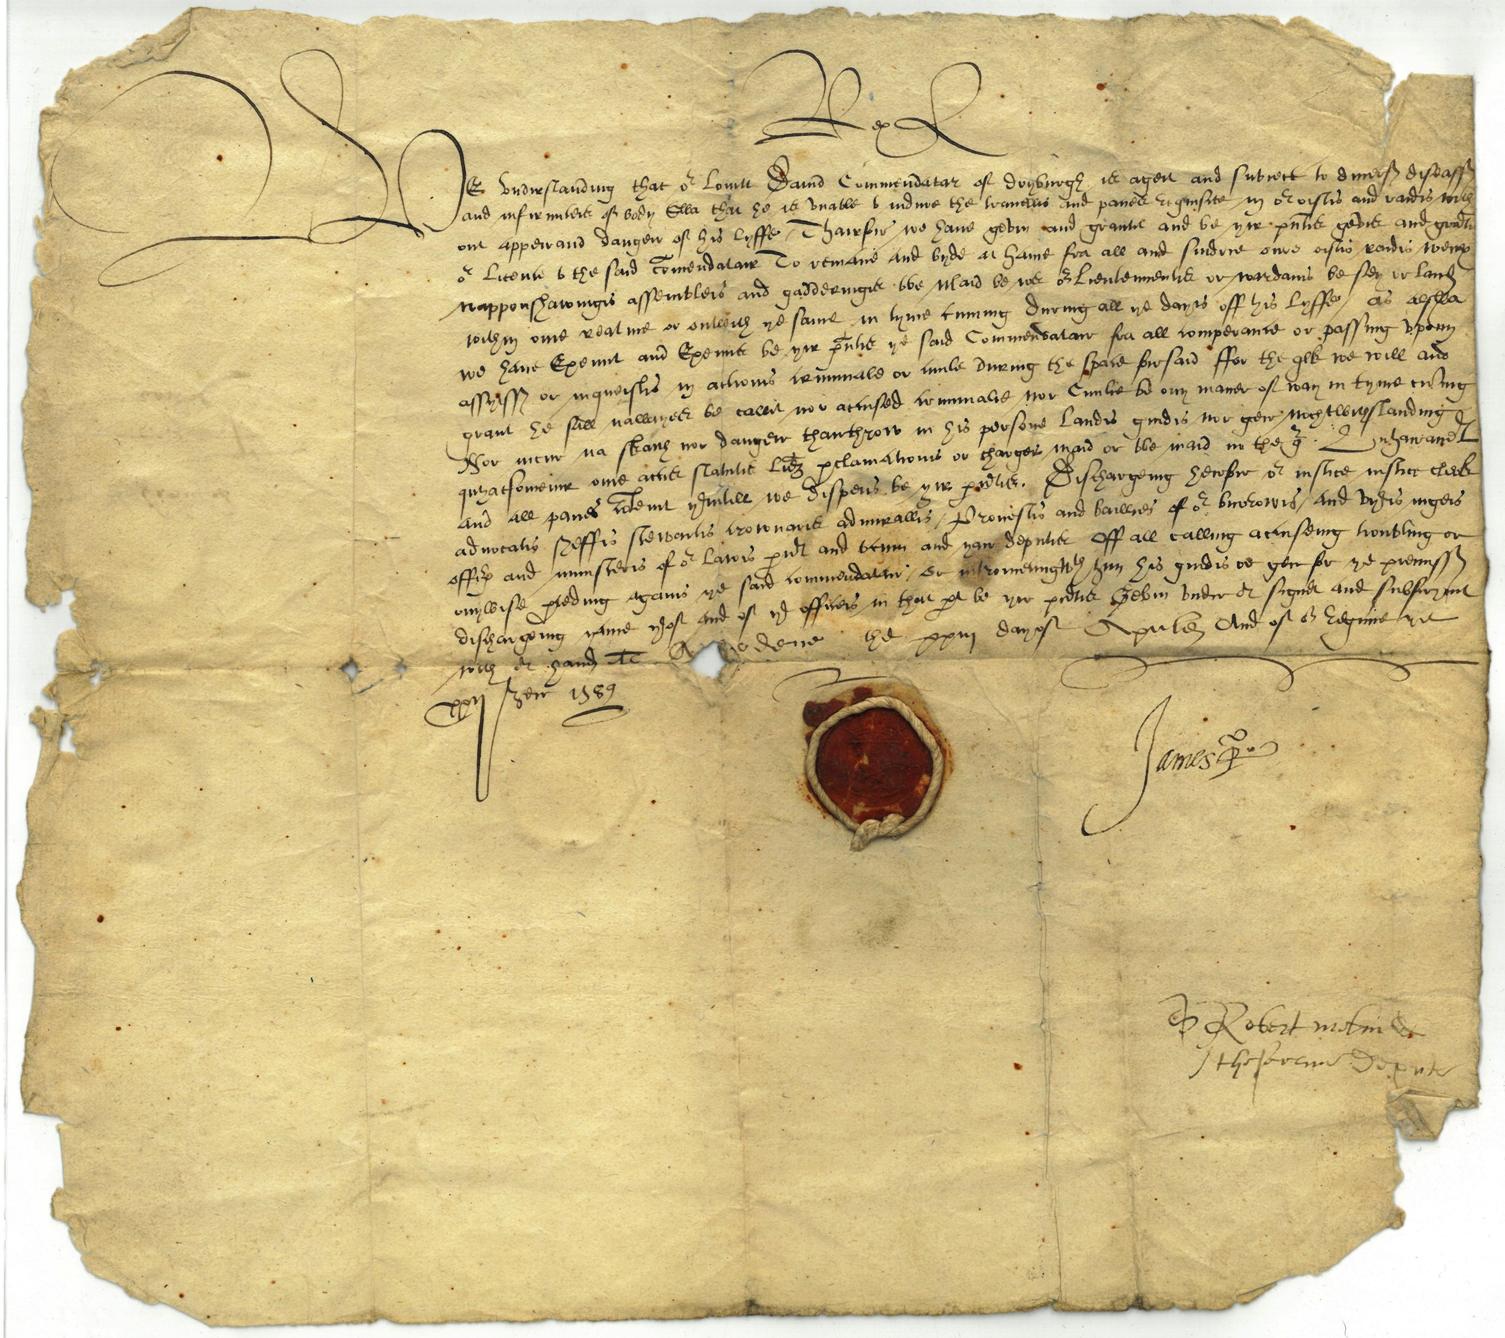 Rex
WE vnderstanding that or louit Dauid Commendatar of dryburgh is ageit and subiect to diuerss diseassis
and infirmiteis of body Swa that he is vnable to indure the trawellis and panes requisite in or oistis and raidis with
out appeirand danger of his lyffe Thairfor we haue gevin and grantit and be yir pntis gevis and grantis
or licence to the said Comendatair To remane and byde at hame fra all and sindrie oure oistis raidis weiris
wapponshawingis assembleis and gadderingis tobe maid be ws or Lieutennentis or wardanis be sey or land
within oure realme or outwith ye same in tyme cuming during all ye dayis off his lyffe / as alswa
we haue Exemit and Exemis be yir pntis ye said Commendatair fra all comperance or passing vpoun
assyiss or inqueistis in actionis criminale or ciuile during the space forsaid ffor the qlk we will and
grant he sall nawayes be callit nor accused criminalie nor Ciuilie be ony maner of way in tyme cuming
Nor incur na skaith nor danger thairthrow in his persone landis gudis nor geir nochtwithstanding
quhatsomeuir oure actis statutis lrez proclamationis or charges maid or tobe maid in the contrair
and all panes contenit yrintill we dispens be yir pntis. Dischargeing heirfor or iustice iustice clerk
aduocatis shreffis stewartis crownaris admirallis / Prouestis and baillies of or burrowis / and vyris iugeis
officiaris and ministeris of or lawis pnt and tocum and yair deputis Off all calling accuseing troubling or
onywise proceding aganis ye said commendatair / or intrometting with him his gudis or geir for ye premisses
dischargeing yame yrof and of yr offices in that pt be yir pntis Gevin vnder or signet and subscryuit
with or hand At the xxij day of Aprile And of or Regime ye
xxij zeir 1589
James R
Robert
thesaurer deput